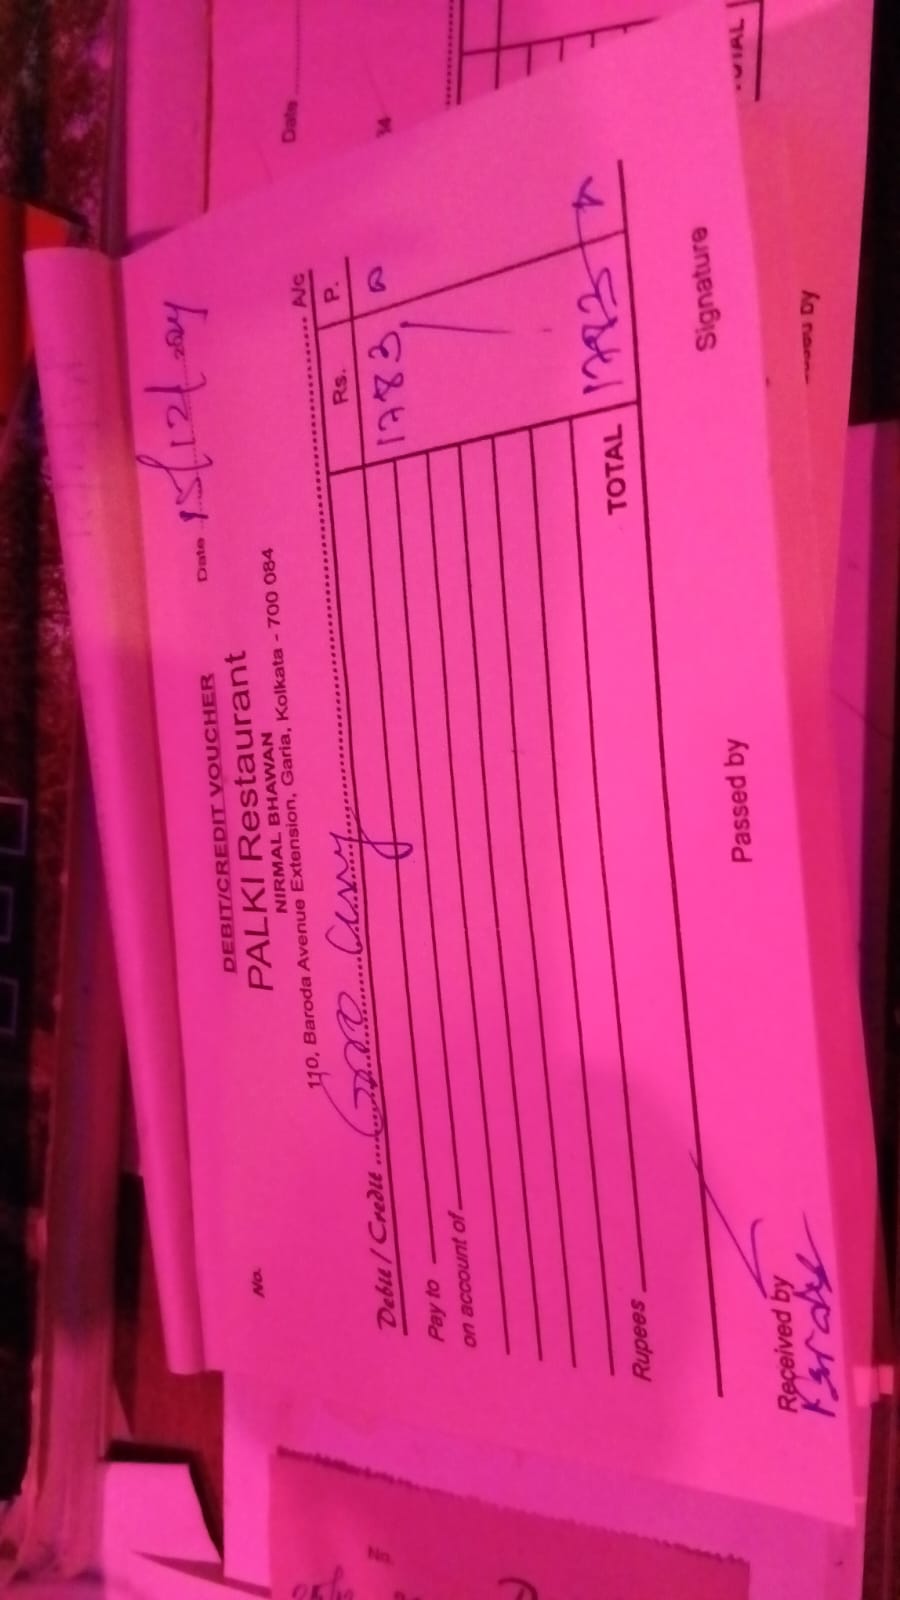 No.
DEBIT/CREDIT VOUCHER
PALKI Restaurant
NIRMAL BHAWAN
110, Baroda Avenue Extension, Garia, Kolkata - 700 084
Date 15/12/2024
Debit / Credit A/c
Rs. P.
1783
Pay to
on account of
TOTAL 1783
Rupees
Received by
Passed by
Signature
Date
34
TOTAL
No.